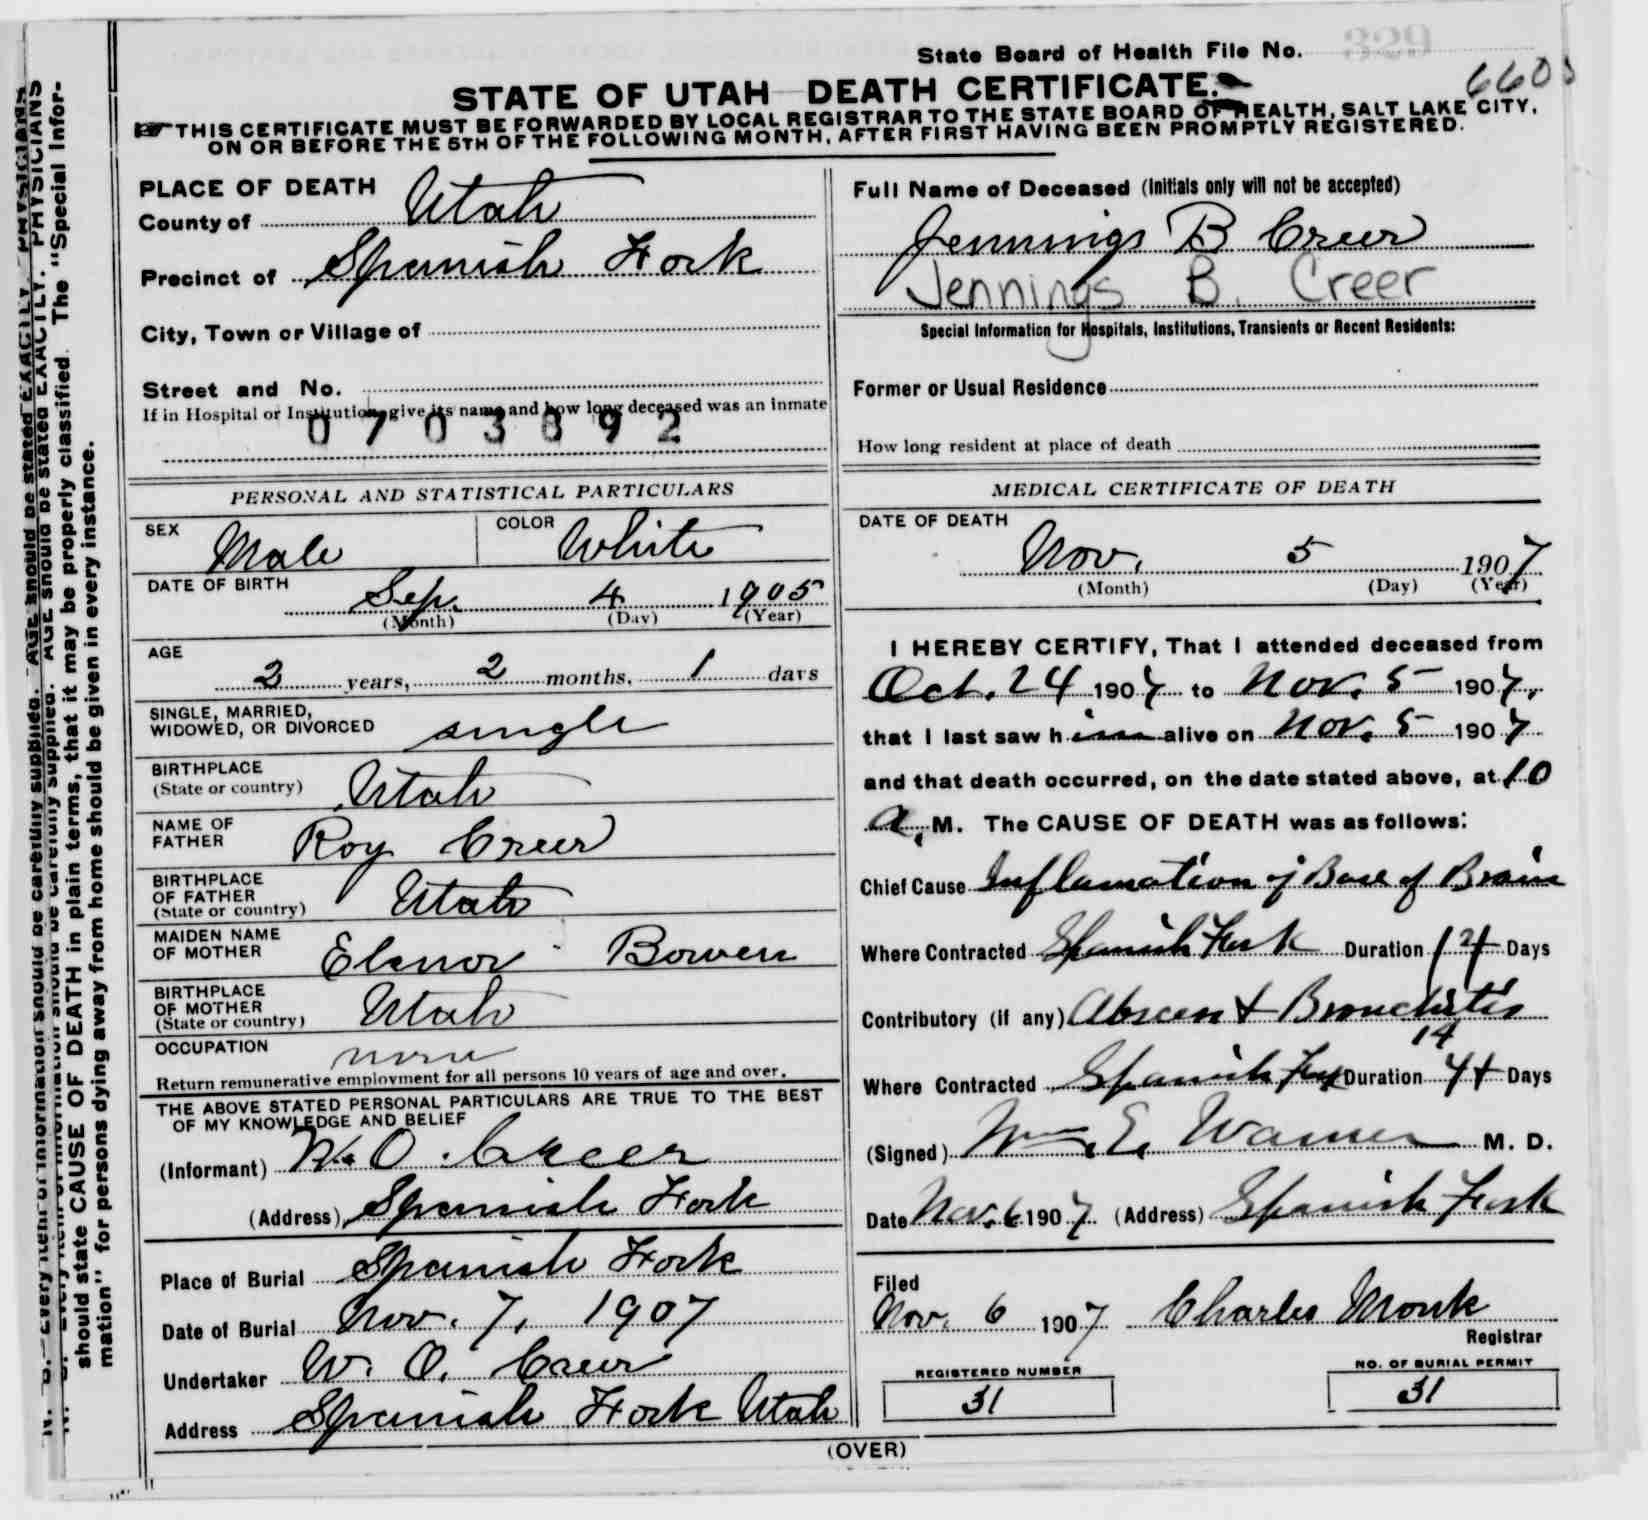 State Board of Health File No.
329
6603
STATE OF UTAH DEATH CERTIFICATE.
THIS CERTIFICATE MUST BE FORWARDED BY LOCAL REGISTRAR TO THE STATE BOARD OF HEALTH, SALT LAKE CITY,
ON OR BEFORE THE 5TH OF THE FOLLOWING MONTH, AFTER FIRST HAVING BEEN PROMPTLY REGISTERED.
PLACE OF DEATH
County of Utah
Precinct of Spanish Fork
City, Town or Village of
Street and No.
If in Hospital or Institution, give its name and how long deceased was an inmate
0703892
Full Name of Deceased (Initials only will not be accepted)
Jennings B Creer
Jennings B. Creer
Special Information for Hospitals, Institutions, Transients or Recent Residents:
Former or Usual Residence
How long resident at place of death
PERSONAL AND STATISTICAL PARTICULARS
SEX Male COLOR White
DATE OF BIRTH
Sep. 4 1905
(Month) (Day) (Year)
AGE
2 years, 2 months, 1 days
SINGLE, MARRIED,
WIDOWED, OR DIVORCED single
BIRTHPLACE
(State or country) Utah
NAME OF
FATHER Roy Creer
BIRTHPLACE
OF FATHER
(State or country) Utah
MAIDEN NAME
OF MOTHER Elenor Bowen
BIRTHPLACE
OF MOTHER
(State or country) Utah
OCCUPATION none
Return remunerative employment for all persons 10 years of age and over.
THE ABOVE STATED PERSONAL PARTICULARS ARE TRUE TO THE BEST
OF MY KNOWLEDGE AND BELIEF
(Informant) W. O. Creer
(Address) Spanish Fork
Place of Burial Spanish Fork
Date of Burial Nov. 7, 1907
Undertaker W. O. Creer
Address Spanish Fork Utah
MEDICAL CERTIFICATE OF DEATH
DATE OF DEATH
Nov. 5 1907
(Month) (Day) (Year)
I HEREBY CERTIFY, That I attended deceased from
Oct. 24 1907 to Nov. 5 1907,
that I last saw him alive on Nov. 5 1907
and that death occurred, on the date stated above, at 10
a. M. The CAUSE OF DEATH was as follows:
Chief Cause Inflamation of Base of Brain
Where Contracted Spanish Fork Duration Days
Contributory (if any) Abscess & Bronchitis
14
Where Contracted Spanish Fork Duration Days
(Signed) Wm. E. Warner M. D.
Date Nov. 6 1907 (Address) Spanish Fork
Filed
Nov. 6 1907 Charles Monk
Registrar
REGISTERED NUMBER
31
NO. OF BURIAL PERMIT
31
(OVER)
N. B.—Every item of information should be carefully supplied. AGE should be stated EXACTLY. PHYSICIANS
should state CAUSE OF DEATH in plain terms, that it may be properly classified. The "Special Infor-
mation" for persons dying away from home should be given in every instance.